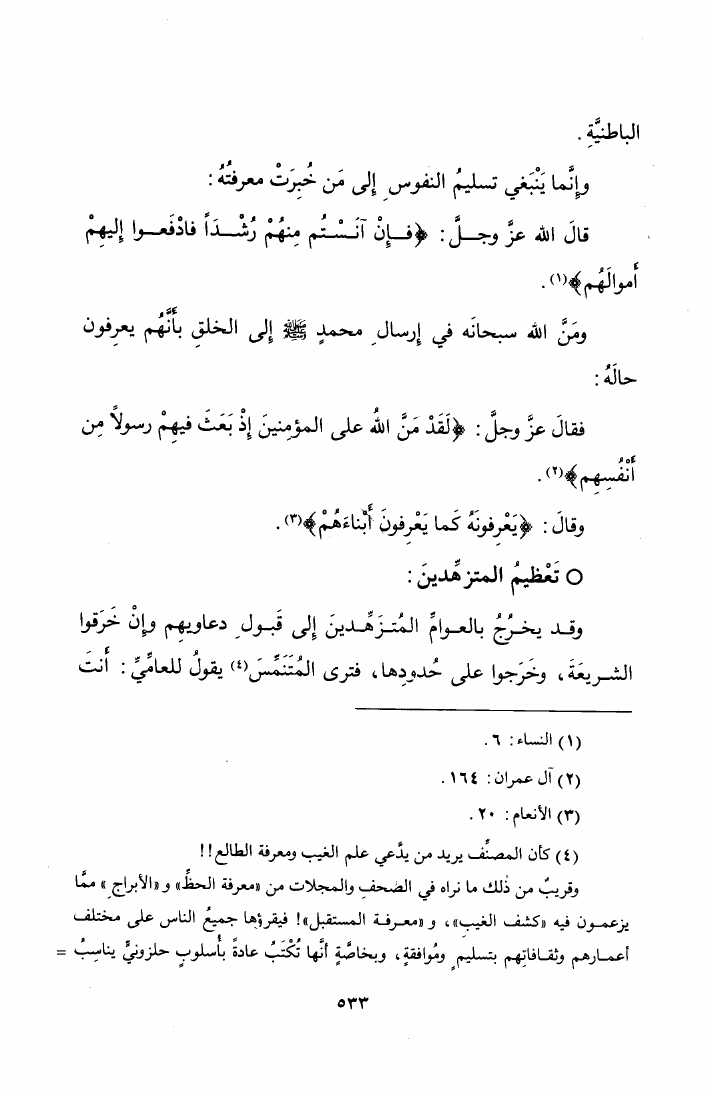 الباطنيَّةِ .
وإِنَّما يَنْبَغي تسليمُ النفوسِ إِلى مَن خُبِرَتْ معرفتُهُ :
قالَ الله عزَّ وجـلَّ : ﴿فـإِنْ آنَـسْـتُم مِنهُمْ رُشْـداً فادْفَعـوا إِليهِمْ
أَموالَهُم﴾(١) .
ومَنَّ الله سبحانَه في إِرسالِ محمدٍ ﷺ إِلى الخلقِ بأَنَّهُم يعرِفون
حالَهُ :
فقالَ عزَّ وجلَّ : ﴿لَقَدْ مَنَّ اللهُ على المؤمِنينَ إِذْ بَعَثَ فيهِمْ رسولاً مِن
أَنْفُسِهِم﴾(٢) .
وقالَ : ﴿يَعْرِفونَهُ كَما يَعْرِفونَ أَبْناءَهُمْ﴾(٣) .
○ تَعْظيمُ المتزهِّدينَ :
وقـد يخـرُجُ بالعـوامِّ المُتـزَهِّـدينَ إِلى قَبـولِ دعاويهِم وإِنْ خَرَقوا
الشـريعَةَ ، وخَرَجوا على حُدودِها ، فترى المُتَنَمِّسَ(٤) يقولُ للعامِّيِّ : أَنتَ
(١) النساء : ٦ .
(٢) آل عمران : ١٦٤ .
(٣) الأنعام : ٢٠ .
(٤) كأن المصنِّف يريد من يدَّعي علم الغيب ومعرفة الطالع !!
وقريبٌ من ذٰلك ما نراه في الصحف والمجلات من «معرفة الحظِّ» و «الأبراجِ» ممَّا
يزعمـون فيه «كشف الغيب» ، و «معـرفـة المستقبل» ! فيقرؤها جميعُ الناس على مختلف
أعمـارهم وثقـافاتِهم بتسليمٍ ومُوافقةٍ ، وبخاصَّةٍ أنَّها تُكْتَبُ عادةً بأُسلوبٍ حلزونيٍّ يناسِبُ =
٥٣٣